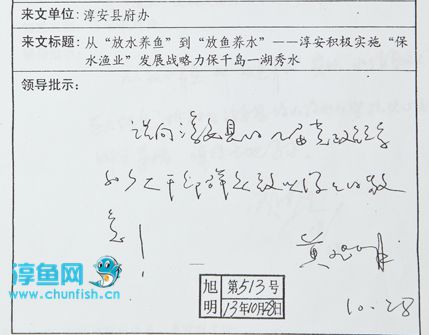 来文单位: 淳安县府办
来文标题: 从“放水养鱼”到“放鱼养水”——淳安积极实施“保
水渔业”发展战略力保千岛一湖秀水
领导批示:
请向淳安县的几届党政领导
和广大干部群众致以深切的敬
意!
黄旭明
10.28
旭明
第513号
13年10月28日
淳鱼网
www.chunfish.cn